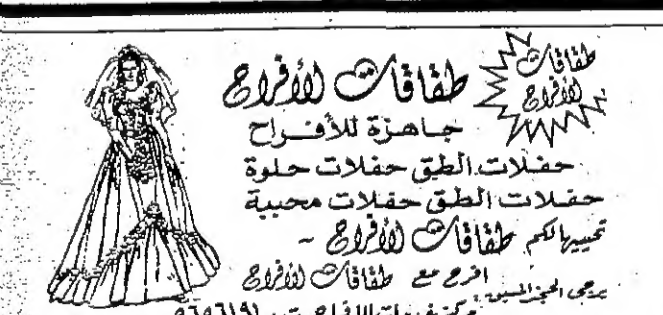 طقاقات
الأفراح
طقاقات الأفراح
جاهزة للأفراح
حفلات الطق حفلات حلوة
حفلات الطق حفلات محببة
تحييها لكم طقاقات الأفراح ~
افرح مع طقاقات الأفراح
يرجى الحجز المسبق: